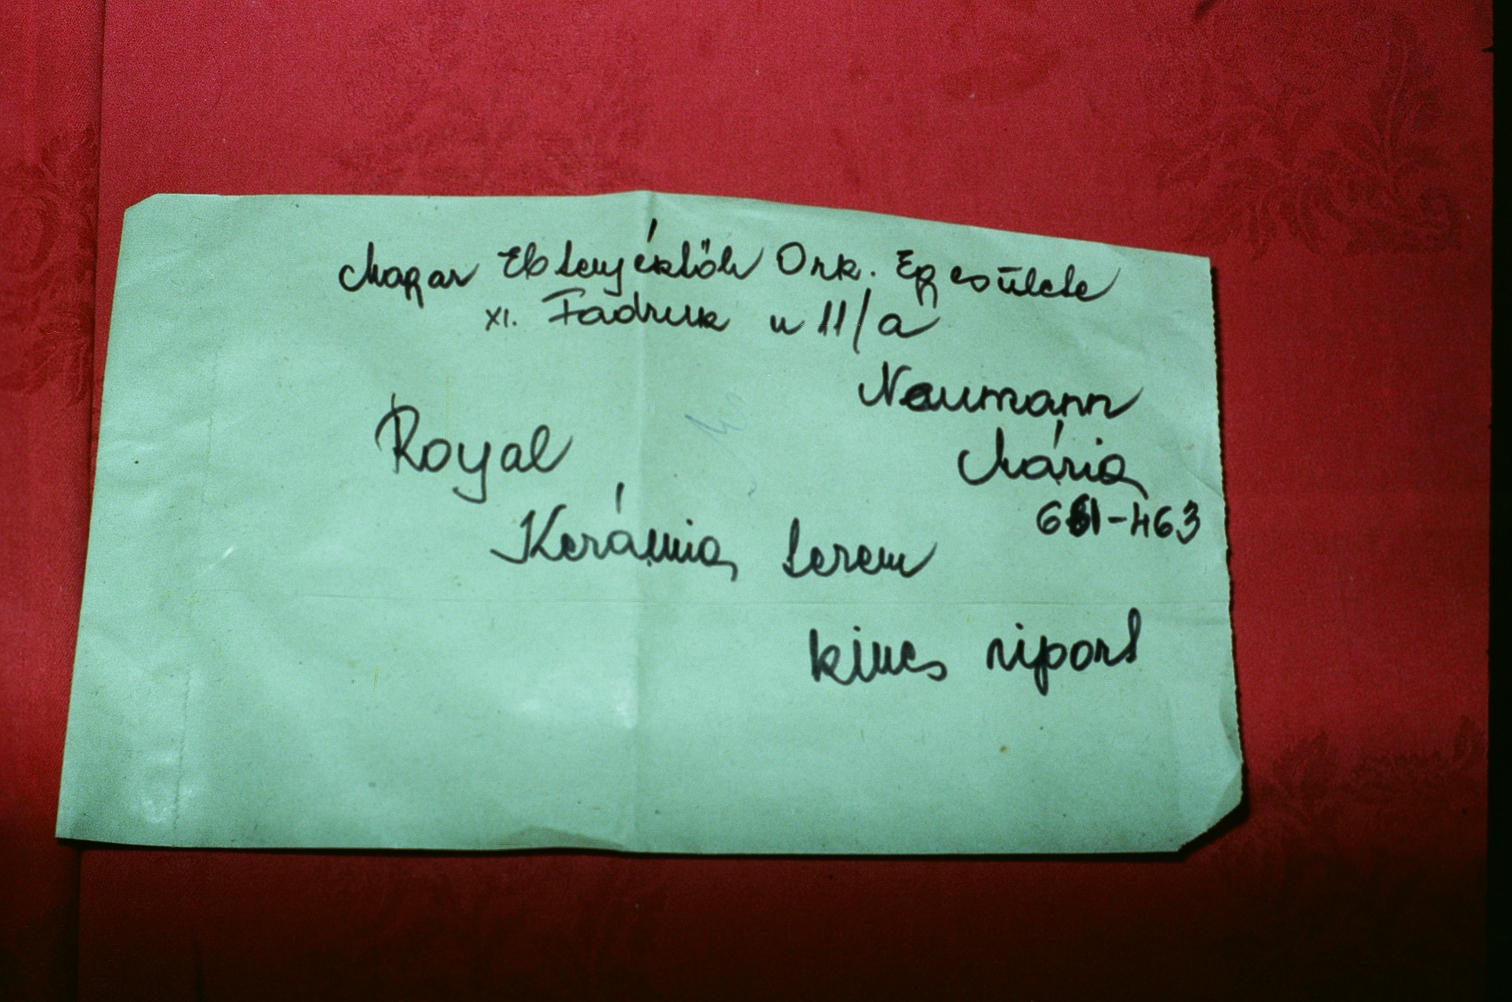 Magyar Ebtenyésztők Ork. Egyesülete
XI. Fadrusz u 11/a
Neumann
Mária
661-463
Royal
Kerámia terem
kincs riport